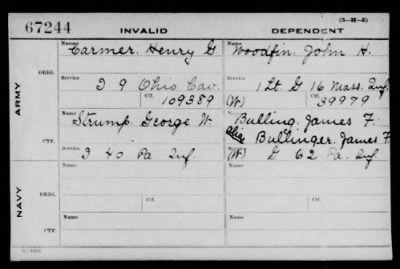 (3-H-5)
67244 INVALID DEPENDENT
Name Name
Carmer, Henry G Woodfin, John H.
ARMY
ORIG.
Service Service
I 9 Ohio Cav. 1 Lt. G 16 Mass. Inf.
Ctf. Ctf.
109389 (W) 39979
Name Name
Strump, George W. Bulling, James F.
alias Bullinger, James F.
CTF.
Service (W)
I 40 Pa. Inf. G 62 Pa. Inf.
NAVY
Name Ctf. Name Ctf.
ORIG.
Name Name
CTF.